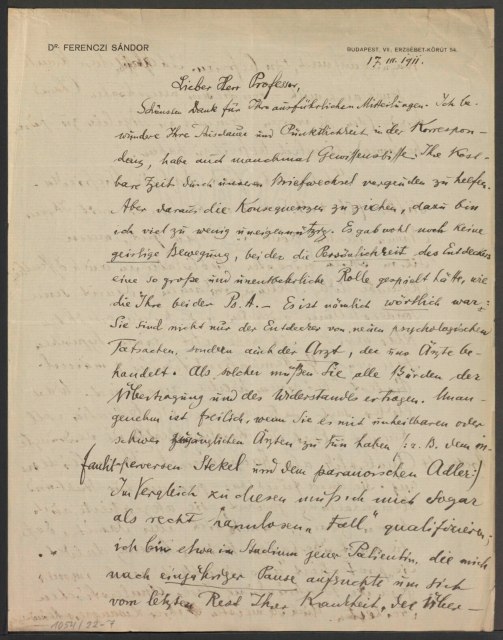 Dr. FERENCZI SÁNDOR
BUDAPEST, VII. ERZSÉBET-KÖRÚT 54.
17. III. 1911.
Lieber Herr Professor,
Schönsten Dank für Ihre ausführlichen Mitteilungen. Ich be-
wundere Ihre Ausdauer und Pünktlichkeit in der Korrespon-
denz, habe auch manchmal Gewissensbisse, Ihre kost-
bare Zeit durch unseren Briefwechsel vergeuden zu helfen.
Aber daraus die Konsequenzen zu ziehen, dazu bin
ich viel zu wenig uneigennützig. Es gab wohl noch keine
geistige Bewegung, bei der die Persönlichkeit des Entdeckers
eine so große und unentbehrliche Rolle gespielt hätte, wie
die Ihre bei der Ps.A. – Es ist nämlich wörtlich wahr:
Sie sind nicht nur der Entdecker von neuen psychologischen
Tatsachen, sondern auch der Arzt, der uns Ärzte be-
handelt. Als solcher müßen Sie alle Bürden der
Übertragung und des Widerstandes ertragen. Unan-
genehm ist freilich, wenn Sie es mit unheilbaren oder
schwer zugänglichen Ärzten zu tun haben (z. B. dem in-
fantil-perversen Stekel und dem paranoischen Adler.)
Im Vergleich zu diesen muß ich mich sogar
als recht "harmlosen Fall" qualifizieren;
ich bin etwa im Stadium jener Patientin, die mich
nach einjähriger Pause aufsuchte um sich
vom letzten Rest Ihrer Krankheit, der Über-
1054/22-7